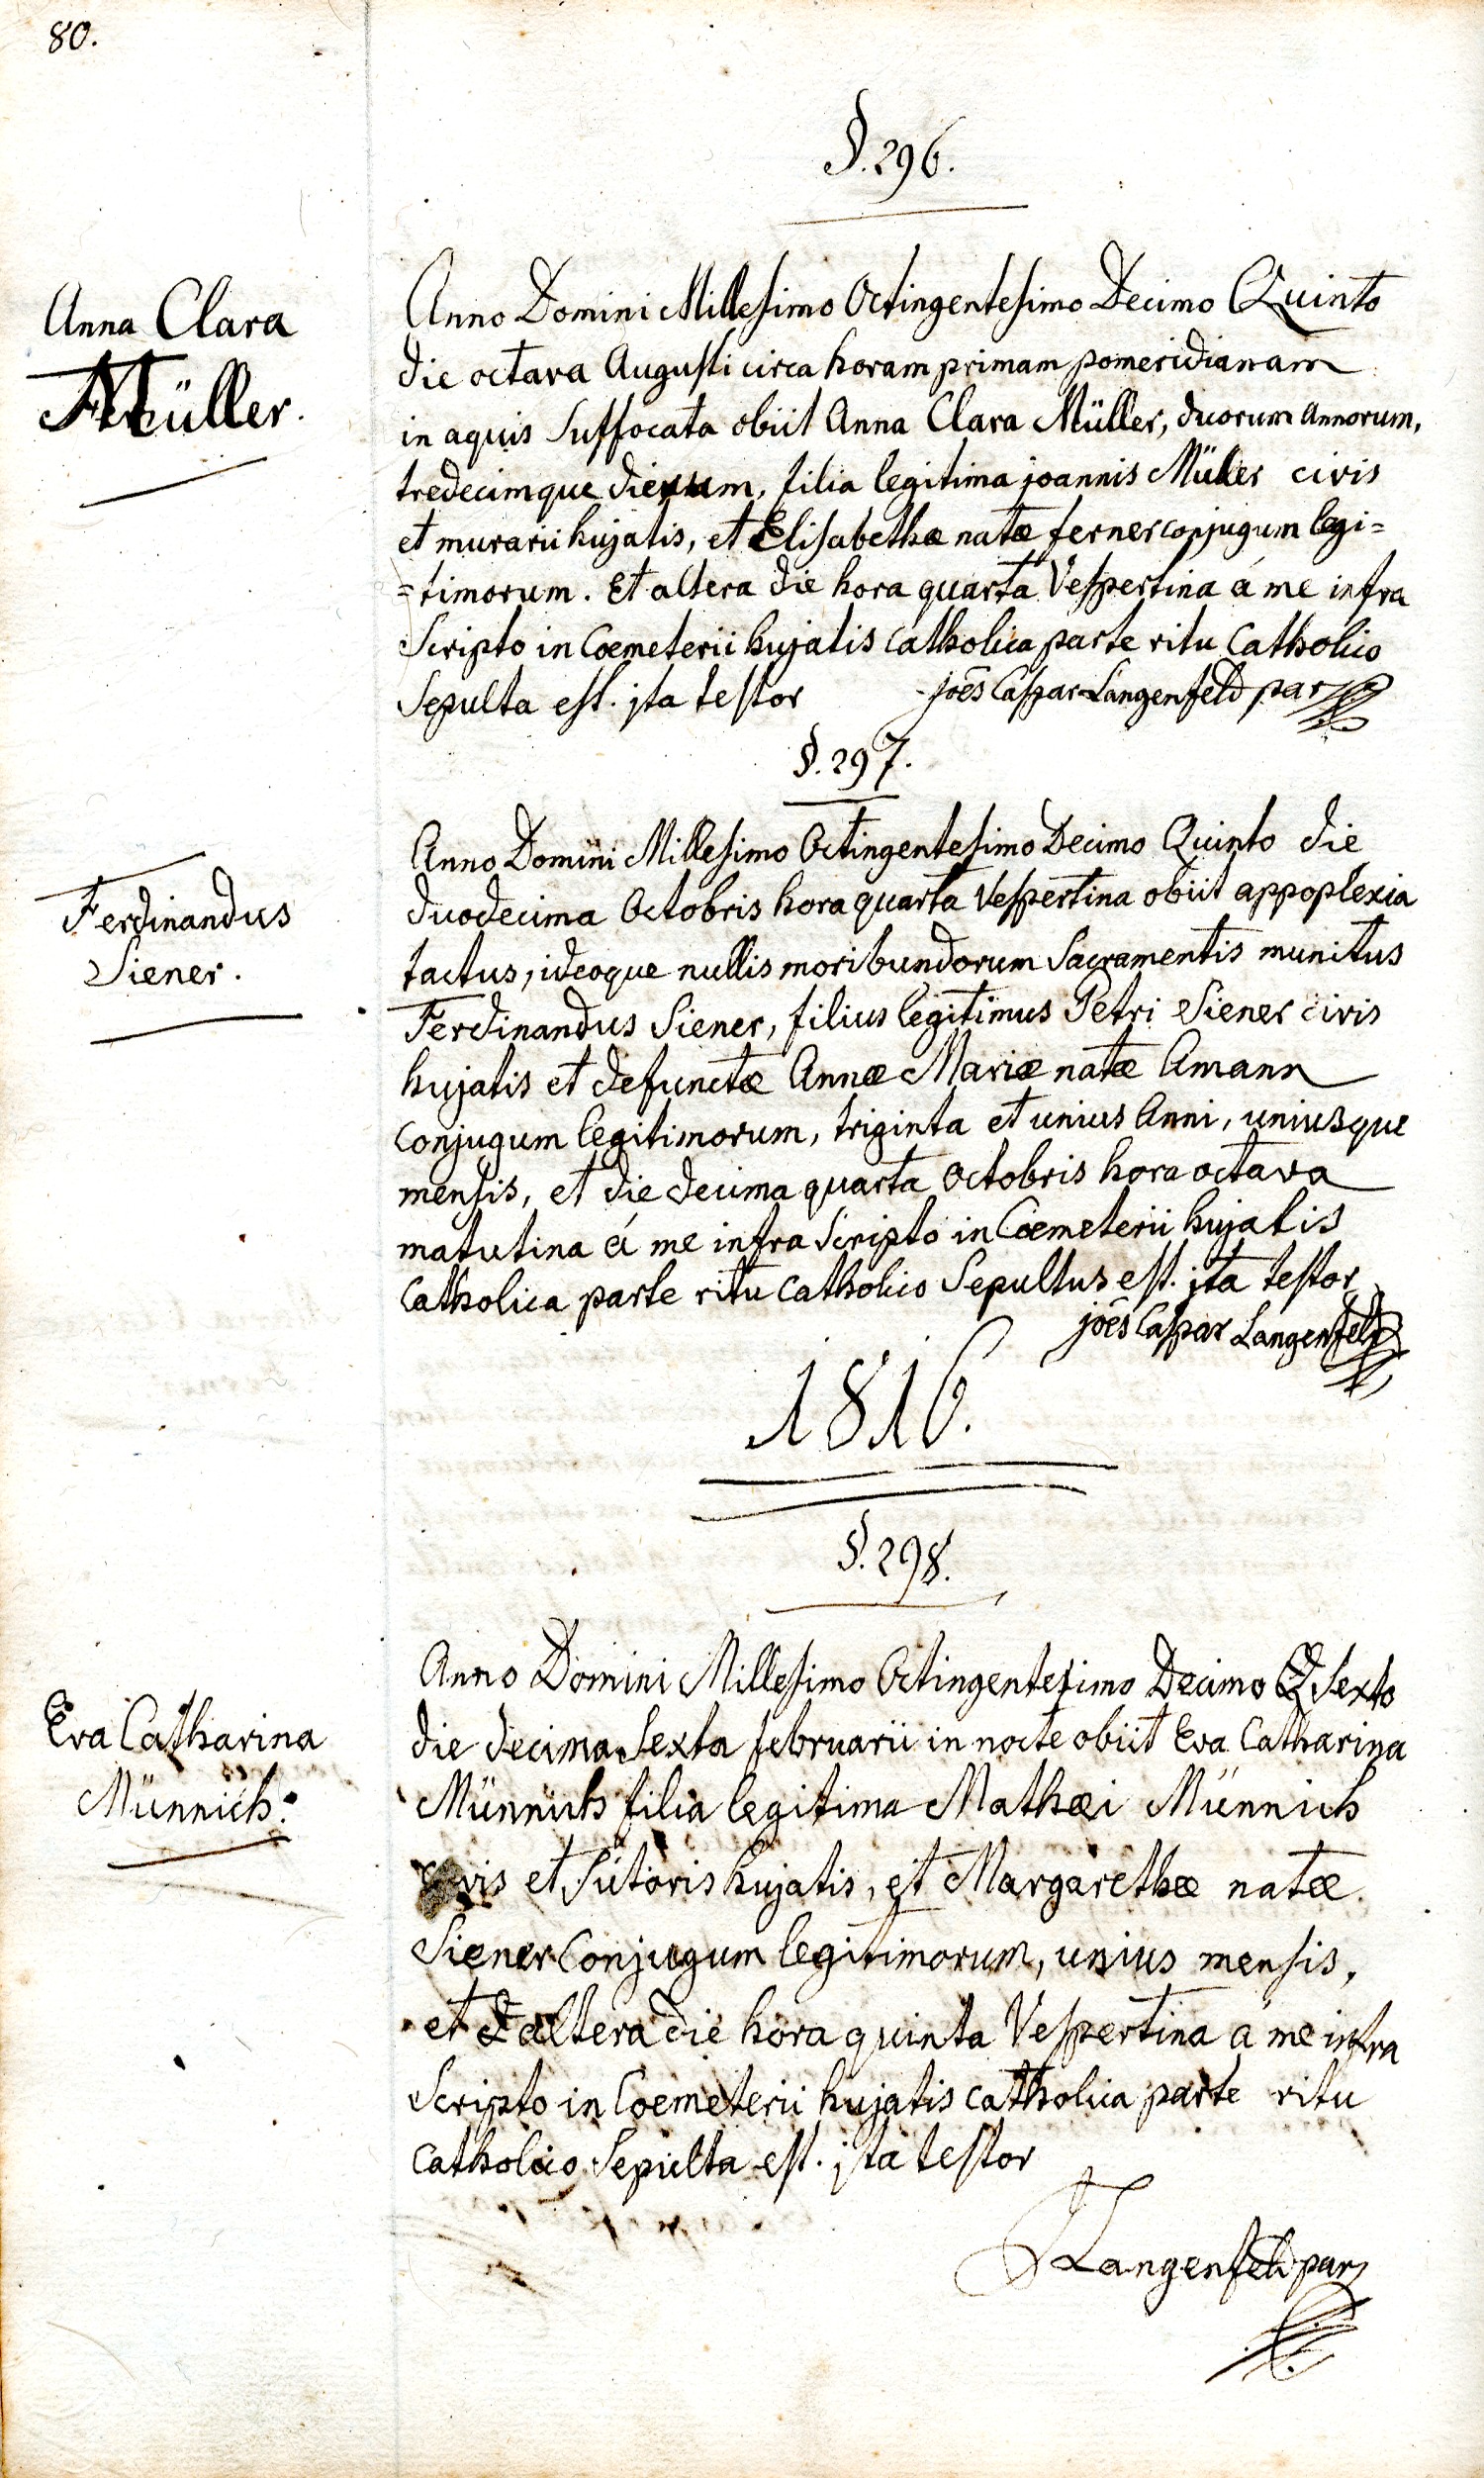 80.
§. 296.
Anna Clara
Müller.
Anno Domini Millesimo Octingentesimo Decimo Quinto
die octava Augusti circa horam primam pomeridianam
in aquis suffocata obiit Anna Clara Müller, duorum annorum,
tredecimque dierum, filia legitima joannis Müller civis
et murarii hujatis, et Elisabethæ natæ ferner conjugum legi=
=timorum. Et altera die hora quarta Vespertina á me infra
Scripto in Coemeterii hujatis catholica parte ritu Catholico
Sepulta est. jta testor joēs Caspar Langenfeld par
§. 297.
Ferdinandus
Siener.
Anno Domini Millesimo Octingentesimo Decimo Quinto die
duodecima Octobris hora quarta Vespertina obiit appoplexia
tactus, ideoque nullis moribundorum Sacramentis munitus
Ferdinandus Siener, filius legitimus Petri Siener civis
hujatis et defunctæ Annæ Mariæ natæ Amann
conjugum legitimorum, triginta et unius Anni, uniusque
mensis, et die decima quarta Octobris hora octava
matutina á me infra Scripto in Coemeterii hujatis
Catholica parte ritu catholico Sepultus est. jta testor
joēs Caspar Langenfeld
1816.
§. 298.
Eva Catharina
Münnich.
Anno Domini Millesimo Octingentesimo Decimo Sexto
die decima Sexta februarii in nocte obiit Eva Catharina
Münnich filia legitima Mathæi Münnich
civis et Sutoris hujatis, et Margarethæ natæ
Siener Conjugum legitimorum, unius mensis,
et altera die hora quinta Vespertina á me infra
Scripto in Coemeterii hujatis catholica parte ritu
catholico Sepulta est. jta testor
Langenfeld par